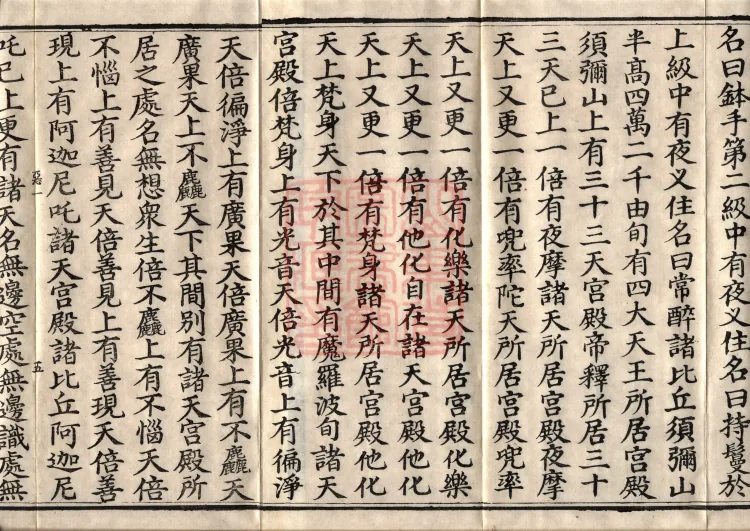 名曰鉢手第二級中有夜叉住名曰持鬘於
上級中有夜叉住名曰常醉諸比丘須彌山
半高四萬二千由旬有四大天王所居宮殿
須彌山上有三十三天宮殿帝釋所居三十
三天已上一倍有夜摩諸天所居宮殿夜摩
天上又更一倍有兜率陀天所居宮殿兜率
天上又更一倍有化樂諸天所居宮殿化樂
天上又更一倍有他化自在諸天宮殿他化
天上又更一倍有梵身諸天所居宮殿他化
天上梵身天下於其中間有魔羅波旬諸天
宮殿倍梵身上有光音天倍光音上有徧淨
天倍徧淨上有廣果天倍廣果上有不麤天
廣果天上不麤天下其間別有諸天宮殿所
居之處名無想衆生倍不麤上有不惱天倍
不惱上有善見天倍善見上有善現天倍善
現上有阿迦尼吒諸天宮殿諸比丘阿迦尼
惡一 五
吒已上更有諸天名無邊空處無邊識處無